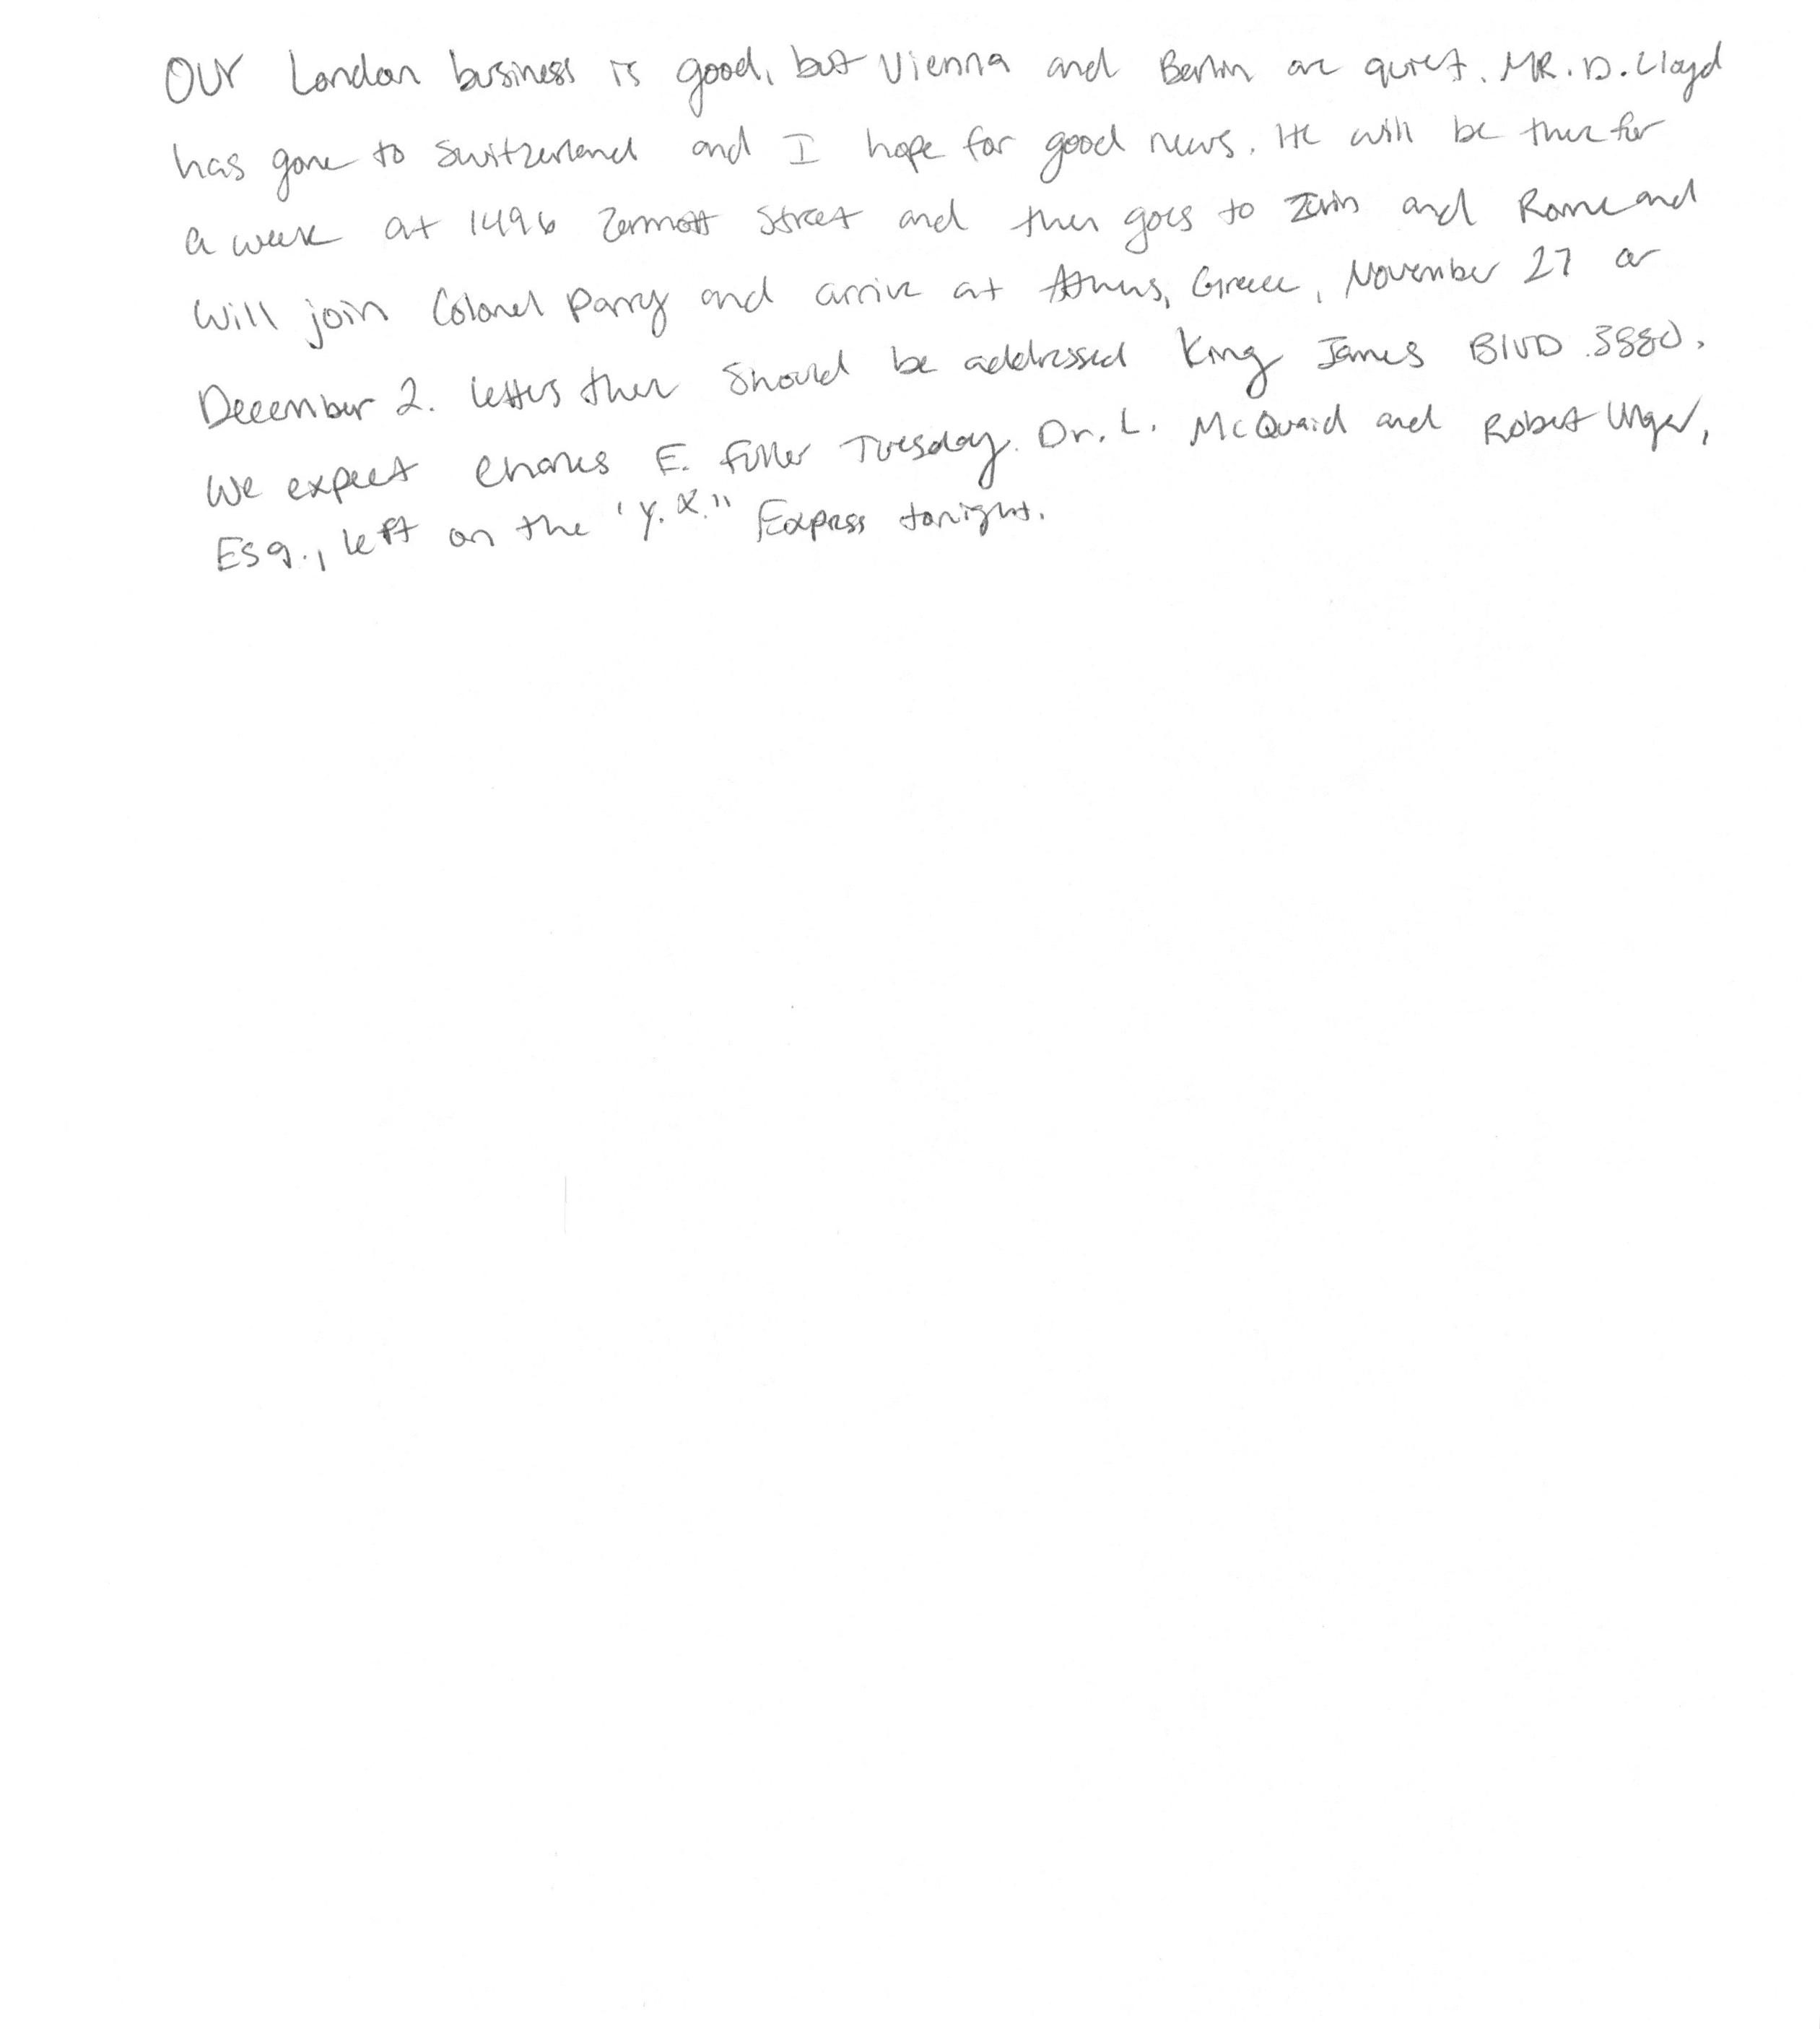 Our London business is good, but Vienna and Berlin are quiet. MR. D. Lloyd
has gone to Switzerland and I hope for good news. He will be there for
a week at 1496 Zermott Street and then goes to and Rome and
will join Colonel Parry and arrive at Athens, Greece, November 27 or
December 2. Letters there should be addressed King James BLVD 3580.
We expect Charles E. Fuller Tuesday. Dr. L. McQuaid and Robert Unger,
Esq., left on the "Y. X." Express tonight.